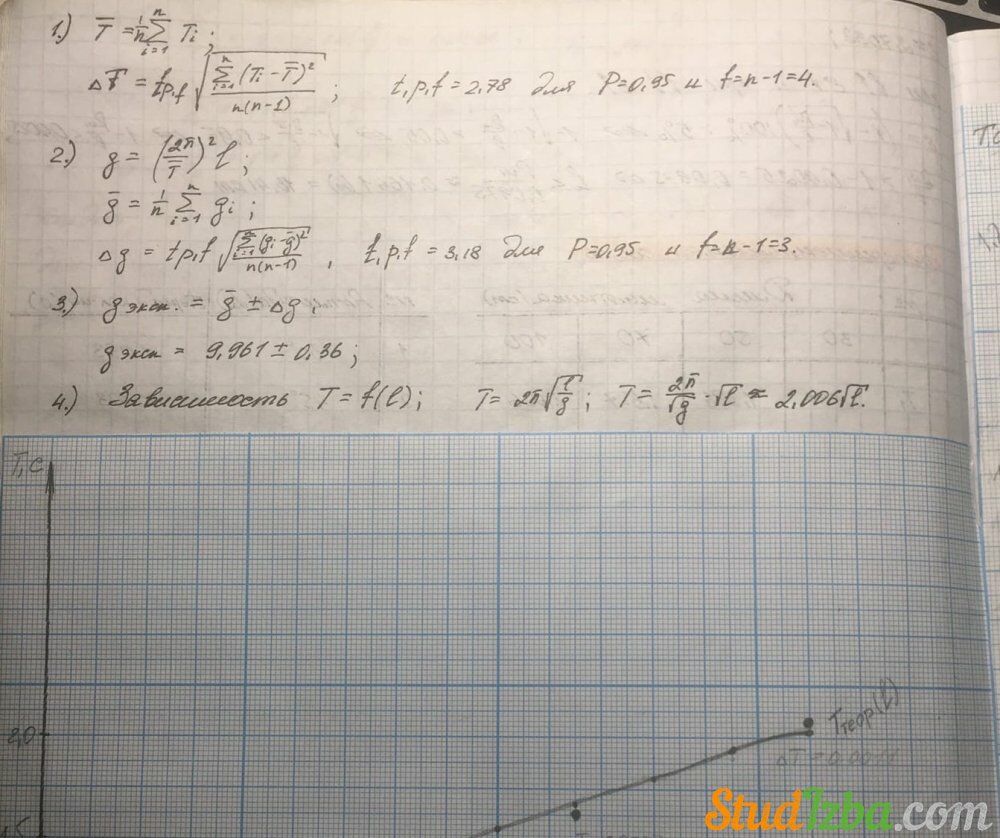 1.) T̅ = 1/n ∑ᵢ₌₁ⁿ Tᵢ ;
ΔT̅ = t p,f √(∑ᵢ₌₁ⁿ (Tᵢ - T̅)² / n(n-1)) ; t,p,f = 2,78 для P=0,95 и f=n-1=4.
2.) g = (2π/T̅)² l ;
g̅ = 1/n ∑ᵢ₌₁ⁿ gᵢ ;
Δg = t p,f √(∑ᵢ₌₁ⁿ (gᵢ - g̅)² / n(n-1)) , t,p,f = 3,18 для P=0,95 и f=n-1=3.
3.) g эксп. = g̅ ± Δg ;
g эксп = 9,961 ± 0,36 ;
4.) Зависимость T = f(l) ; T = 2π√(l/g) ; T = 2π/√g · √l ≈ 2,006√l.
T, c
Tтеор(l)
2,0
StudIzba.com